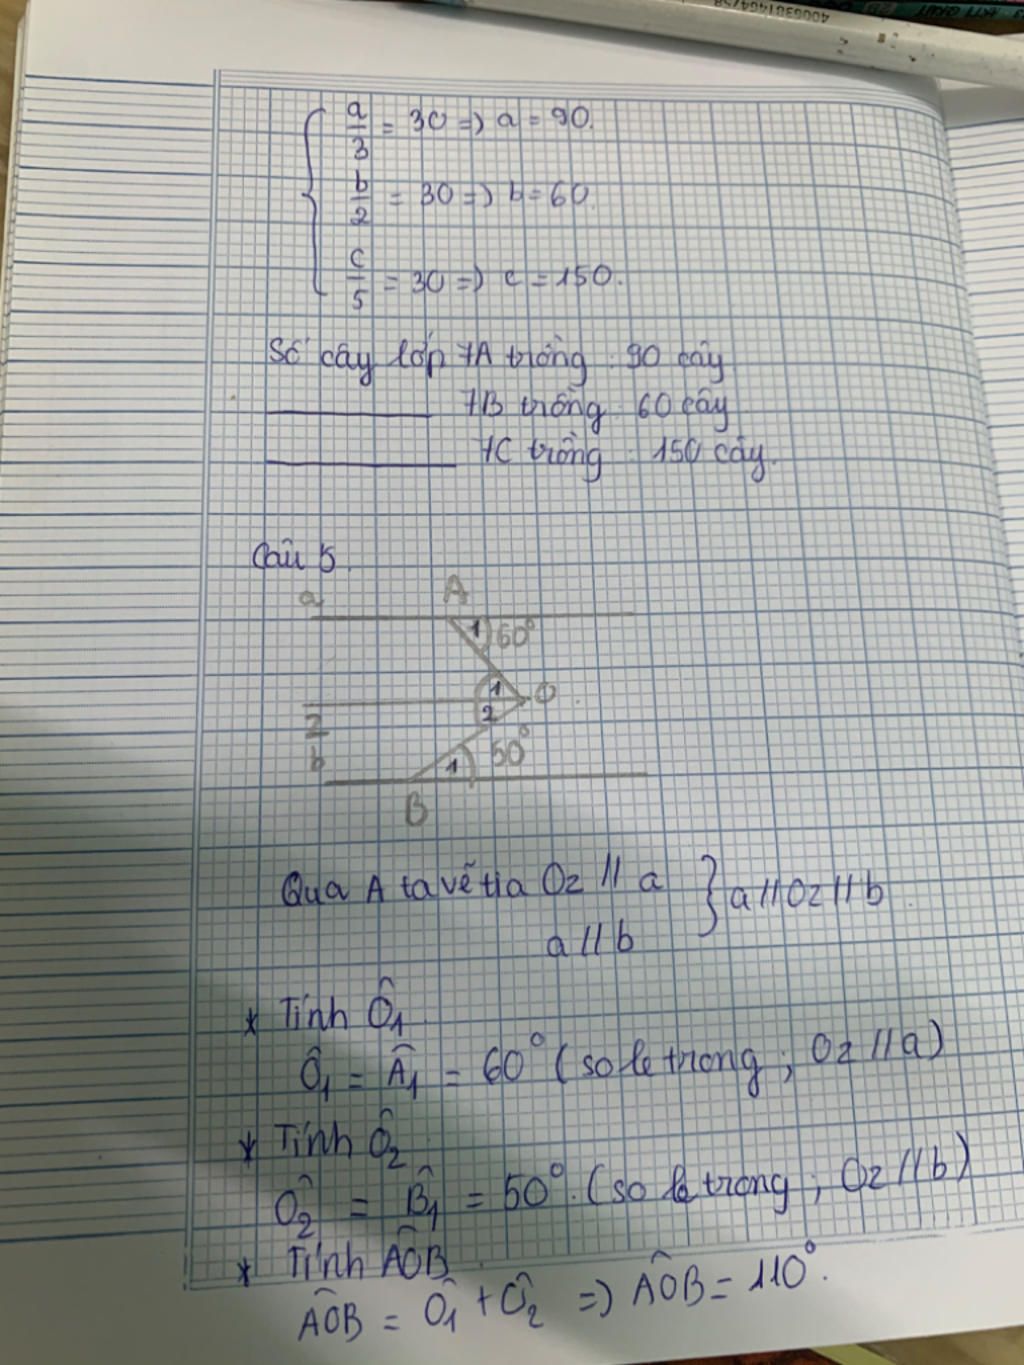 4006381464758
a/3 = 30 => a = 90.
b/2 = 30 => b = 60.
c/5 = 30 => c = 150.
Số cây lớp 7A trồng : 90 cây
7B trồng : 60 cây
7C trồng : 150 cây.
Câu 5.
a A
1 60°
1 O
z 2
b 1 50°
B
Qua A ta vẽ tia Oz // a } a // Oz // b.
a // b
* Tính Ô1
Ô1 = Â1 = 60° (so le trong ; Oz // a)
* Tính Ô2
Ô2 = B̂1 = 50°. (so le trong ; Oz // b)
* Tính AÔB
AÔB = Ô1 + Ô2 => AÔB = 110°.